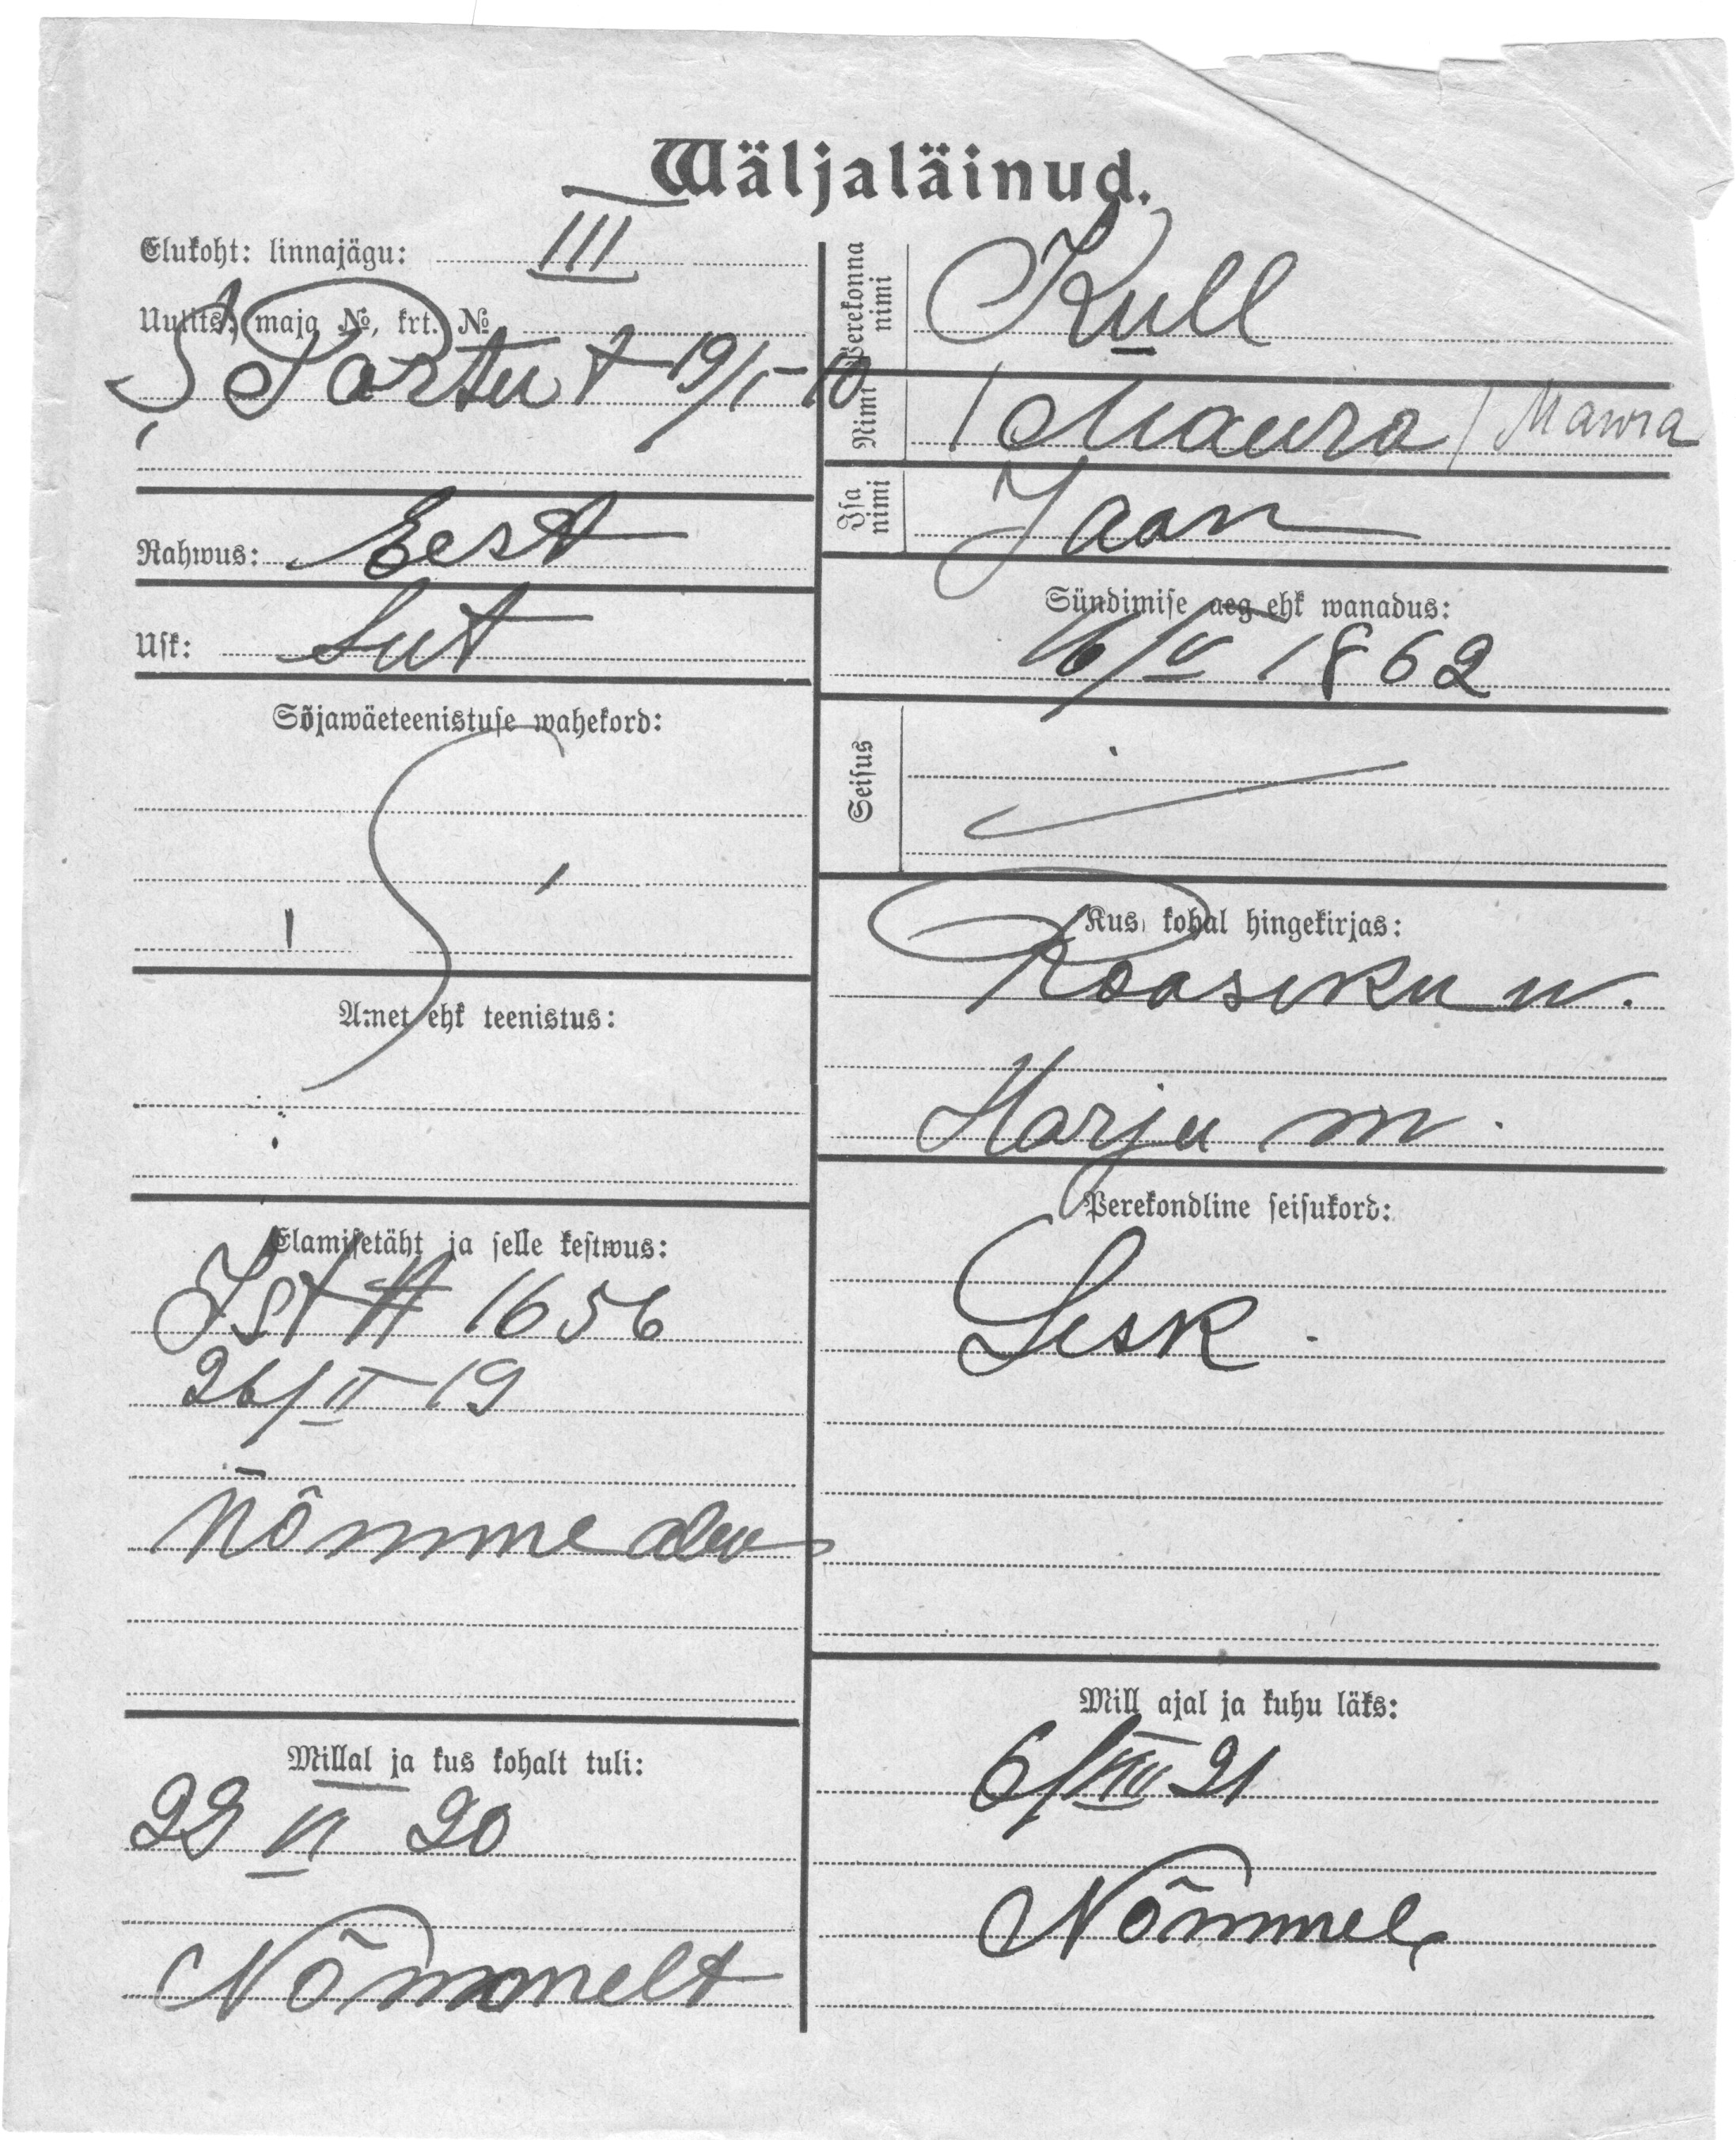 Wäljaläinud.
Elukoht: linnajägu: III
Uulits, maja №, krt. №
S Tartu t 19/1-10
Rahwus: Eest
Usk: Lut
Sõjawäeteenistuse wahekord:
Amet ehk teenistus:
Elamisetäht ja selle kestwus:
1656
26/II 19
Nõmme alew
Millal ja kus kohalt tuli:
22 VI 20
Nõmmelt
Perekonna nimi
Kull
Nimi
Maura / Mawra
Isa nimi
Jaan
Sündimise aeg ehk wanadus:
1862
Seisus
Kus kohal hingekirjas:
Raasiku w.
Harju m.
Perekondline seisukord:
Lesk.
Mill ajal ja kuhu läks:
6/VIII 21
Nõmmel